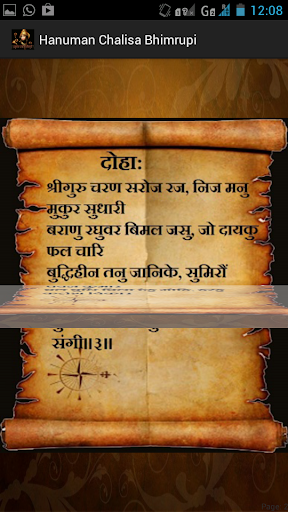 12:08
Hanuman Chalisa Bhimrupi
दोहा:
श्रीगुरु चरण सरोज रज, निज मनु
मुकुर सुधारी
बराणु रघुवर बिमल जसु, जो दायकु
फल चारि
बुद्धिहीन तनु जानिके, सुमिरौं
संगी॥३॥